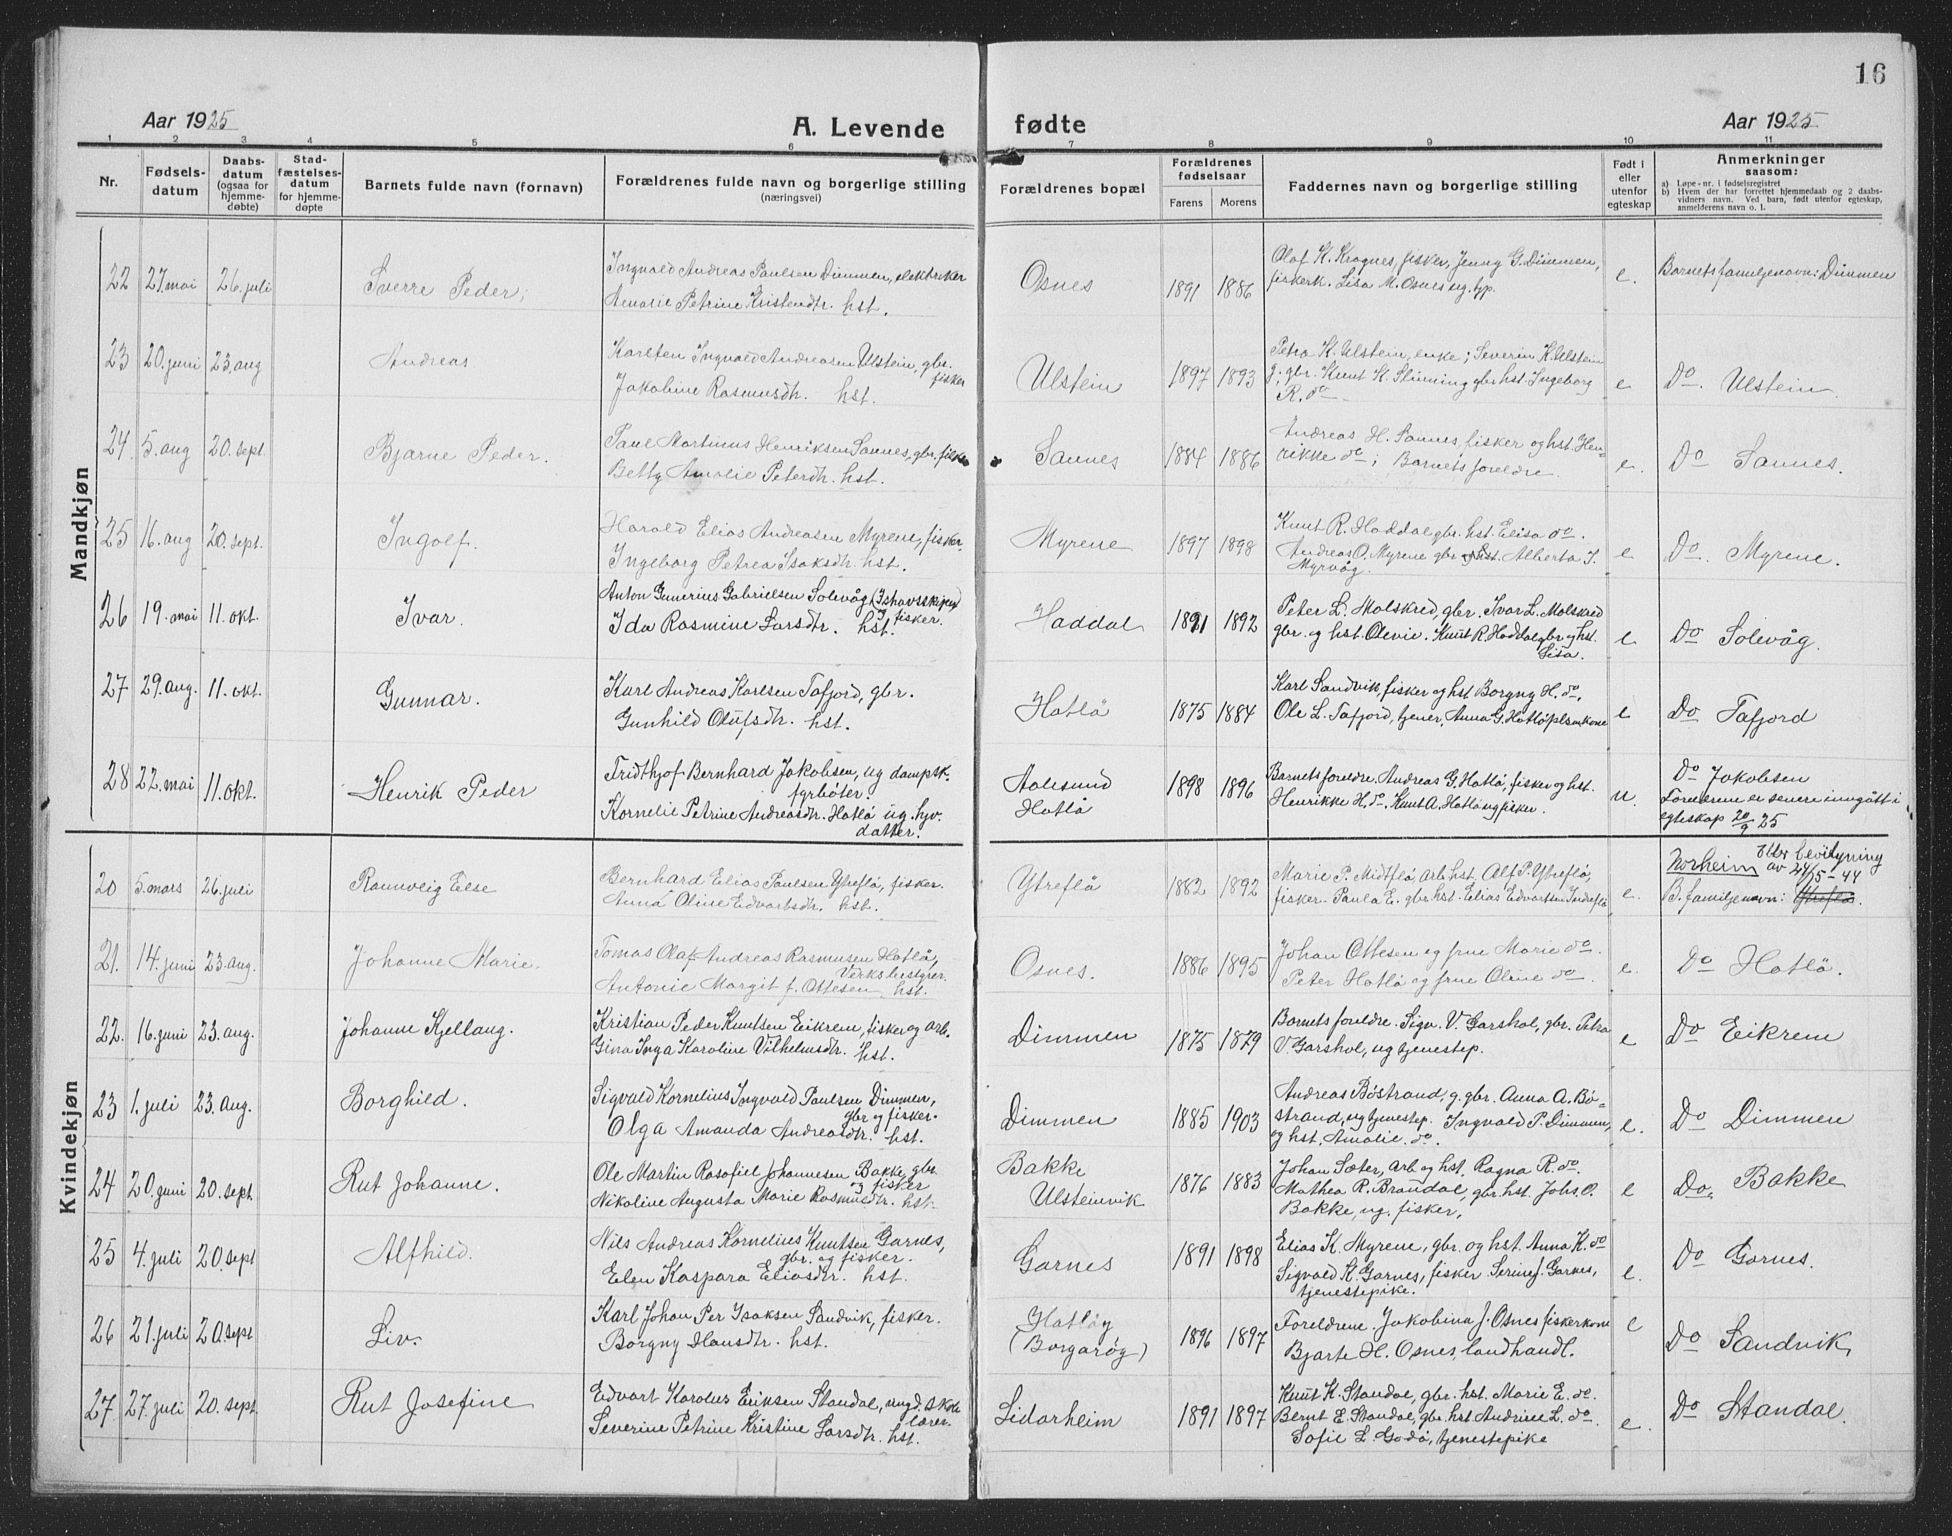 16
Aar 1925
A. Levende fødte
Aar 1925
1 2 3 4 5 6 7 8 9 10 11
Nr.
Fødsels-
datum
Daabs-
datum
(ogsaa for
hjemme-
døbte)
Stad-
fæstelses-
datum
for hjemme-
døpte
Barnets fulde navn (fornavn)
Forældrenes fulde navn og borgerlige stilling
(næringsvei)
Forældrenes bopæl
Forældrenes
fødselsaar
Farens Morens
Faddernes navn og borgerlige stilling
Født i
eller
utenfor
egteskap
Anmerkninger
saasom:
a) Løpe-nr. i fødselsregistret
b) Hvem der har forrettet hjemmedaab og 2 daabs-
vidners navn. Ved barn, født utenfor egteskap,
anmelderens navn o. l.
Mandkjøn
22 27. mai 26. juli Sverre Peder,
Ingvald Andreas Paulsen Dimmen, elektriker
Petrine Kristendtr. hst.
Osnes 1891 1886
Olaf K. Kragnes, fisker, Jenny G. Dimmen,
fiskerk. Lisa M. Osnes ug. typ.
e. Barnets familjenavn: Dimmen
23 20. juni 23. aug Andreas
Karsten Ingvald Andreasen Ulstein, gbr.
fisker
Jakobine Rasmusdtr. hst.
Ulstein 1897 1893
Petra K. Ulstein, enke; Severin K. Ulstein
g. gbr. Knut K. gbr. hst. Ingeborg
R. do
e Do. Ulstein
24 5. aug 20. sept. Bjarne Peder.
Paul Martinus Henriksen Saunes, gbr. fisker
Betty Amalie Petersdtr. hst.
Saunes 1884 1886
Andreas H. Saunes, fisker og hst. Hen-
rikke do; Barnets foreldre
e. Do Saunes.
25 16. aug 20. sept. Ingolf.
Harald Elias Andreasen Myrene, fisker.
Ingeborg Petrea Isaksdtr. hst.
Myrene 1897 1898
Knut R. Haddal gbr. hst. Elisa do.
Andreas A. Myrene gbr. hst. Alberta I.
Myrvåg.
e Do Myrene.
26 19. mai 11. okt. Ivar.
Anton Gunerius Gabrielsen Solevåg (Ishavsskipper)
fisker.
Ida Rasmine Larsdtr. hst.
Haddal 1891 1892
Peter L. Molskred, gbr. Ivar L. Molskred
gbr. og hst. Olevie. Knut R. Haddal gbr og hst.
Lisa.
e Do Solevåg.
27 29. aug. 11. okt. Gunnar.
Karl Andreas Karlsen Tafjord, gbr.
Gunhild Olufsdtr. hst.
Hatlø 1875 1884
Karl Sandvik, fisker og hst Borgny H. do,
Ole L. Tafjord, tjener, Anna G. Hatlø
e Do Tafjord
28 22. mai 11. okt. Henrik Peder
Fridthjof Bernhard Jakobsen, ug dampsk.
fyrbøter.
Kornelie Petrine Andreasdtr. Hatlø ug. hjv.
datter.
Aalesund
Hatlø
1898 1896
Barnets foreldre. Andreas G. Hatlø, fisker og hst.
Henrikke H. do. Knut A. Hatlø ug fisker.
u. Do Jakobsen
Foreldrene er senere inngått i
egteskap 20/9 25
Kvindekjøn
20 5. mars 26. juli Raunveig Else
Bernhard Elias Paulsen Ytreflø, fisker.
Anna Oline Edvartsdtr. hst.
Ytreflø 1882 1892
Marie P. Midtflø, arb. hst. Alf. P. Ytreflø,
fisker. Paula E. gbr. hst. Elias Edvartsen Indreflø
e. Norheim bevilgning
av 24/5-44
B. familjenavn: Ytreflø.
21. 14. juni 23. aug. Johanne Marie.
Tomas Olaf Andreas Rasmusen Hatlø,
Verksbestyrer.
Antonie Margit f. Ottesen, hst.
Osnes. 1886 1895
Johan Ottesen og frue Marie do.
Peter Hatlø og frue Oline do
e. Do Hatlø.
22. 16. juni 23. aug. Johanne Kjellaug.
Kristian Peder Knutsen Eikrem, fisker og arb.
Gina Inga Karoline Vilhelmsdtr. hst.
Dimmen 1875 1879
Barnets foreldre. Sigv. V. Garshol, gbr. Petra
V. Garshol, ug tjenestep.
e Do Eikrem
23 1. juli 23. aug. Borghild.
Sigvald Kornelius Ingvald Paulsen Dimmen,
gbr og fisker.
Olga Amanda Andreasdtr. hst.
Dimmen 1885 1903
Andreas Bøstrand, g. gbr. Anna A. Bø-
strand, ug tjenestep. Ingvald P. Dimmen,
og hst. Amalie do.
e. Do Dimmen
24 20. juni 20. sept. Rut Johanne.
Ole Martin Rasofiel Johannesen Bakke, gbr.
og fisker
Nikoline Augusta Marie Rasmusdtr. hst.
Bakke
Ulsteinvik
1876 1883
Johan Sæter, arb og hst. Ragna R. do.
Mathea R. Brandal, gbr. hst. Johs. O.
Bakke, ug. fisker,
e Do. Bakke
25 4. juli 20. sept Alfhild.
Nils Andreas Kornelius Knutsen Garnes,
gbr. og fisker.
Elen Kaspara Eliasdtr. hst.
Garnes 1891 1898
Elias K. Myrene, gbr. og hst. Anna K. do
Sigvald K. Garnes, fisker Serine J. Garnes,
tjenestepike.
e. Do Garnes.
26 21. juli 20. sept Liv.
Karl Johan Per Isaksen Sandvik, fisker.
Borgny Hansdtr. hst.
Hatløy
(Borgarøy)
1896 1897
Foreldrene. Jakobina J. Osnes fiskerkone
Bjarte H. Osnes, landhandl.
e Do Sandvik
27 27. juli 20. sept. Rut Josefine
Edvart Karolus Eriksen Standal, ungd. skole
lærer.
Severine Petrine Kristine Larsdtr. hst.
Lidarheim 1891 1897
Knut K. Standal, gbr. hst. Marie E. do.
Bernt E. Standal, gbr. hst. Andrine L. do.
Sofie L. Godø, tjenestepike
e. Do Standal.